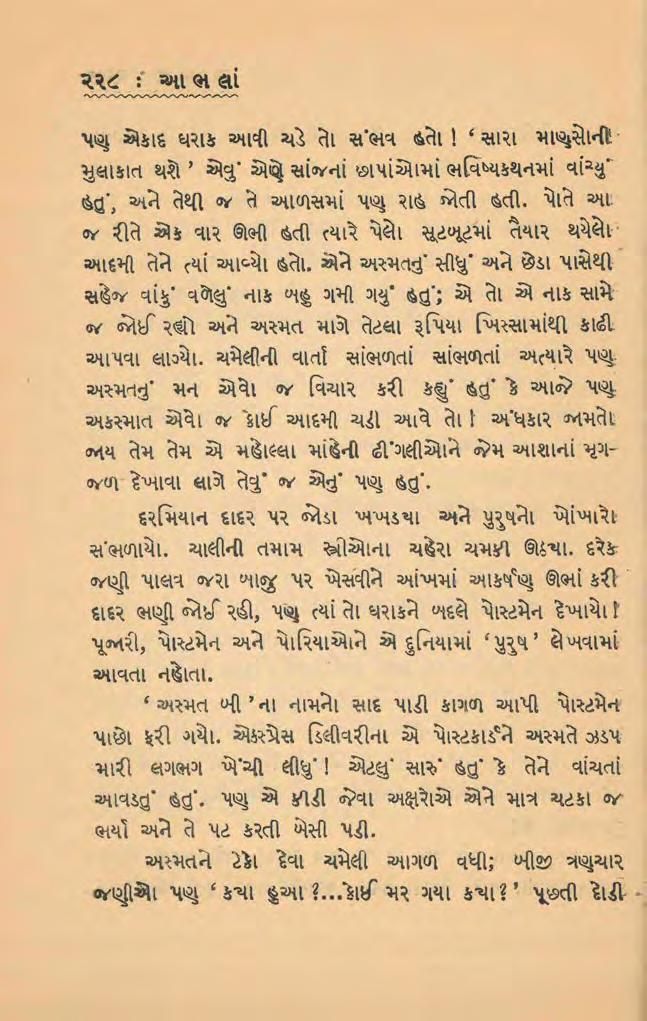 ૨૨૮ : આભલાં
પણ એકાદ ઘરાક આવી ચડે તો સંભવ હતો ! ‘ સારા માણસોની
મુલાકાત થશે ’ એવું એણે સાંજનાં છાપાંઓમાં ભવિષ્યકથનમાં વાંચ્યું
હતું, અને તેથી જ તે આળસમાં પણ રાહ જોતી હતી. પોતે આ
જ રીતે એક વાર ઊભી હતી ત્યારે પેલો સૂટબૂટમાં તૈયાર થયેલો
આદમી તેને ત્યાં આવ્યો હતો. એને અસ્મતનું સીધું અને છેડા પાસેથી
સહેજ વાંકું વળેલું નાક બહુ ગમી ગયું હતું; એ તો એ નાક સામે
જ જોઈ રહ્યો અને અસ્મત માગે તેટલા રૂપિયા ખિસ્સામાંથી કાઢી
આપવા લાગ્યો. ચમેલીની વાર્તા સાંભળતાં સાંભળતાં અત્યારે પણ
અસ્મતનું મન એવો જ વિચાર કરી કહ્યું હતું કે આજે પણ
અકસ્માત એવો જ કોઈ આદમી ચડી આવે તો ! અંધકાર જામતો
જાય તેમ તેમ એ મહોલ્લા માંહેની ઢીંગલીઓને જેમ આશાનાં મૃગ-
જળ દેખાવા લાગે તેવું જ એનું પણ હતું.
દરમિયાન દાદર પર જોડા ખખડ્યા અને પુરુષનો ખોંખારો
સંભળાયો. ચાલીની તમામ સ્ત્રીઓના ચહેરા ચમકી ઊઠ્યા. દરેક
જણી પાલવ જરા બાજુ પર ખેસવીને આંખમાં આકર્ષણ ઊભાં કરી
દાદર ભણી જોઈ રહી, પણ ત્યાં તો ઘરાકને બદલે પોસ્ટમેન દેખાયો !
પૂજારી, પોસ્ટમેન અને પોરિયાઓને એ દુનિયામાં ‘ પુરુષ ’ લેખવામાં
આવતા નહોતા.
‘ અસ્મત બી ’ના નામનો સાદ પાડી કાગળ આપી પોસ્ટમેન
પાછો ફરી ગયો. એક્સ્પ્રેસ ડિલીવરીના એ પોસ્ટકાર્ડને અસ્મતે ઝડપ
મારી લગભગ ખેંચી લીધું ! એટલું સારું હતું કે તેને વાંચતાં
આવડતું હતું. પણ એ કીડી જેવા અક્ષરોએ એને માત્ર ચટકા જ
ભર્યા અને તે પટ કરતી બેસી પડી.
અસ્મતને ટેકો દેવા ચમેલી આગળ વધી; બીજી ત્રણચાર
જણીઓ પણ ‘ ક્યા હુઆ ?...કોઈ મર ગયા ક્યા ? ’ પૂછતી દોડી